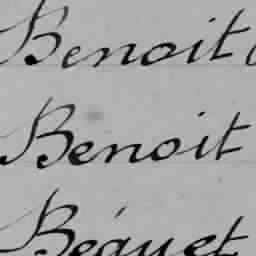 Benoit
Benoit
Béquet